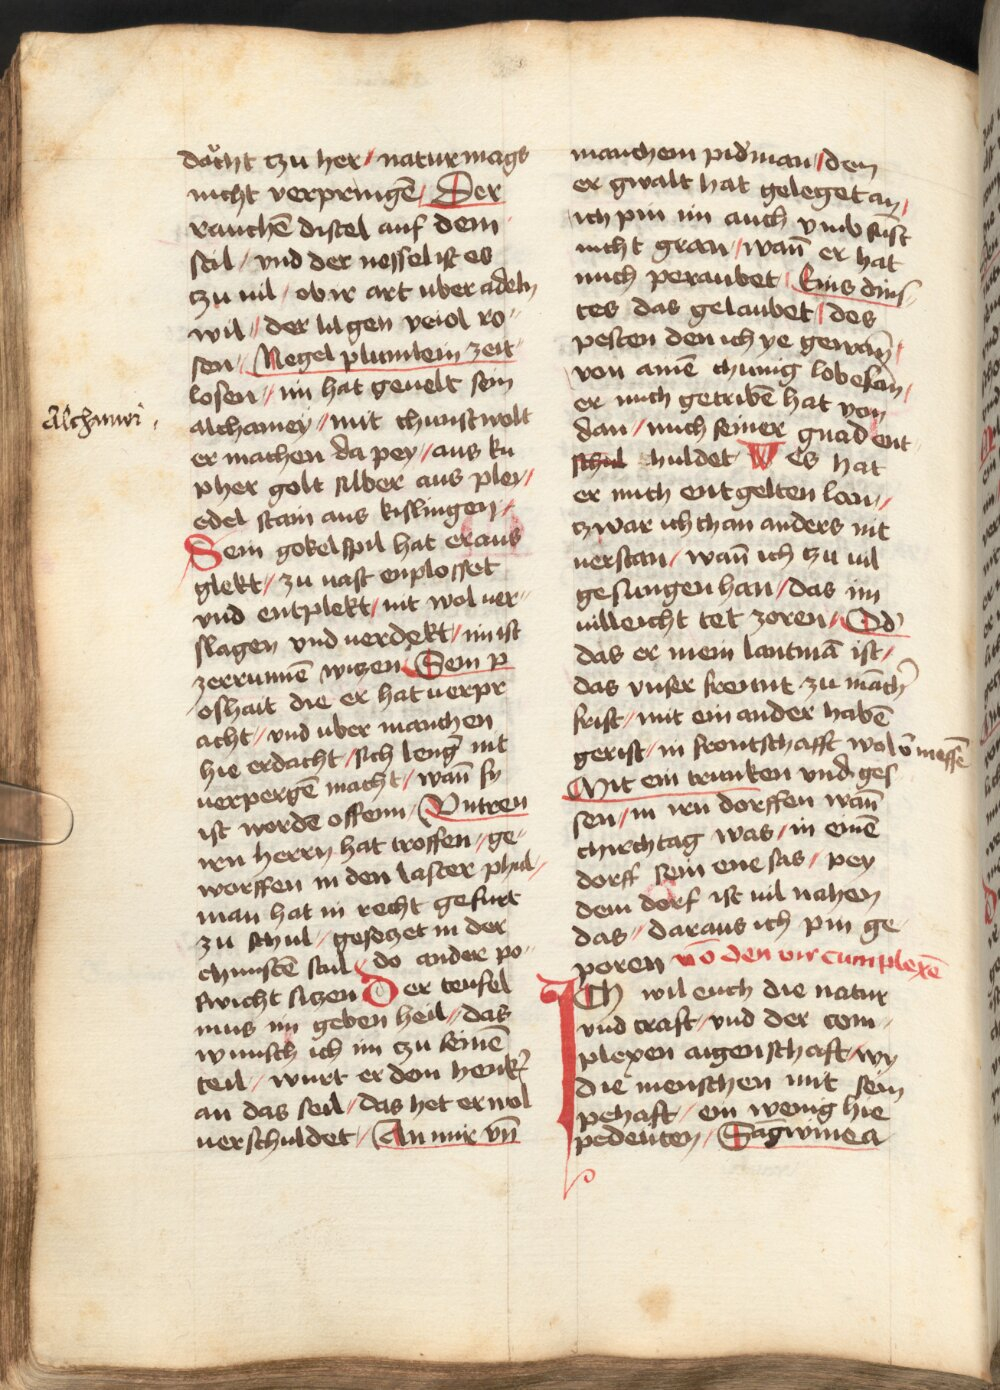 Alchamei
docht tzu her / natur mags
nicht verpringē / Der
rauchē distel auf dem
stil / vnd der nessel ist es
tzu uil / ob ir art uber adeln
wil // der lilgen veiol ro=
sen / Negel plumlein zeit
losen // im hat geuelt sein
alchamey // mit chunst wolt
er machen da pey // aus ku
pher golt silber aus pley //
edel stain aus kislingen //
Sein gokelspil hat er aus
glekt // zu uast enplosset
vnd entplekt / nit wol uer=
slagen vnd uerdekt / im ist
zerrunnē wizen Sein p
oshait die er hat uerpr
acht / vnd uber manchen
hie erdacht / sich leng nit
uerpergē macht / wan̄ sy
ist wordē offenn / Untren
irn herrn hat troffen // ge=
worffen in den laster phul //
man hat in recht gefurt
zu schul / gesetzet in der
chunstē stul / do ander po=
swicht sitzen Der teufel
mus im geben heil // das
wunsch ich im tzu seinē
teil / wurt er dem henkr
an das seil / das het er wol
uerschuldet / An mir vn̄
manchem pidman / den
er gwalt hat geleget an /
ich pin im auch vmb sust
nicht gran / wan̄ er hat
mich peraubet / Eins dins=
tes das gelaubet / des
pesten den ich ye gewan̄ /
von ainē chunig lobesan̄ /
er mich getribē hat von
dan / mich seiner gnad ent
schul huldet Wes hat
er mich entgelten lon //
tzwar ich chan anders nit
uerstan / wan̄ ich tzu uil
gesungen han / das im
uilleicht tet zoren // Od
das er mein lantmā ist /
das vnser freunt zu mach
frist / mit ein ander habē
gerist / in frontschafft wol v̄messē
Mit ein trinken vnd ges
sen / in irn dorffen wan̄
chirchtag was / in einē
dorff sein ene sas / pey
dem dorf ist uil nahen
das // daraus ich pin ge=
poren vō den vir cumplexē
ICh wil euch die natur
vnd craft / vnd der com=
plexen aigenschaft / wy
die menschen mit sein
pehaft / ein wenig hie
pedeuten / Sagwinea